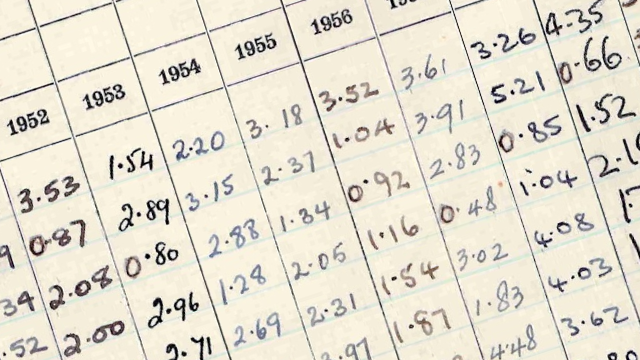 1952 1953 1954 1955 1956
3.53 1.54 2.20 3.18 3.52 3.61 3.26 4.35
9 0.87 2.89 3.15 2.37 1.04 3.91 5.21 0.66
34 2.08 0.80 2.88 1.34 0.92 2.83 0.85 1.52
.52 2.00 2.96 1.28 2.05 1.16 0.48 1.04 2.1
2.71 2.69 2.31 1.54 3.02 4.08
.97 1.87 1.83 4.03
4.48 3.62